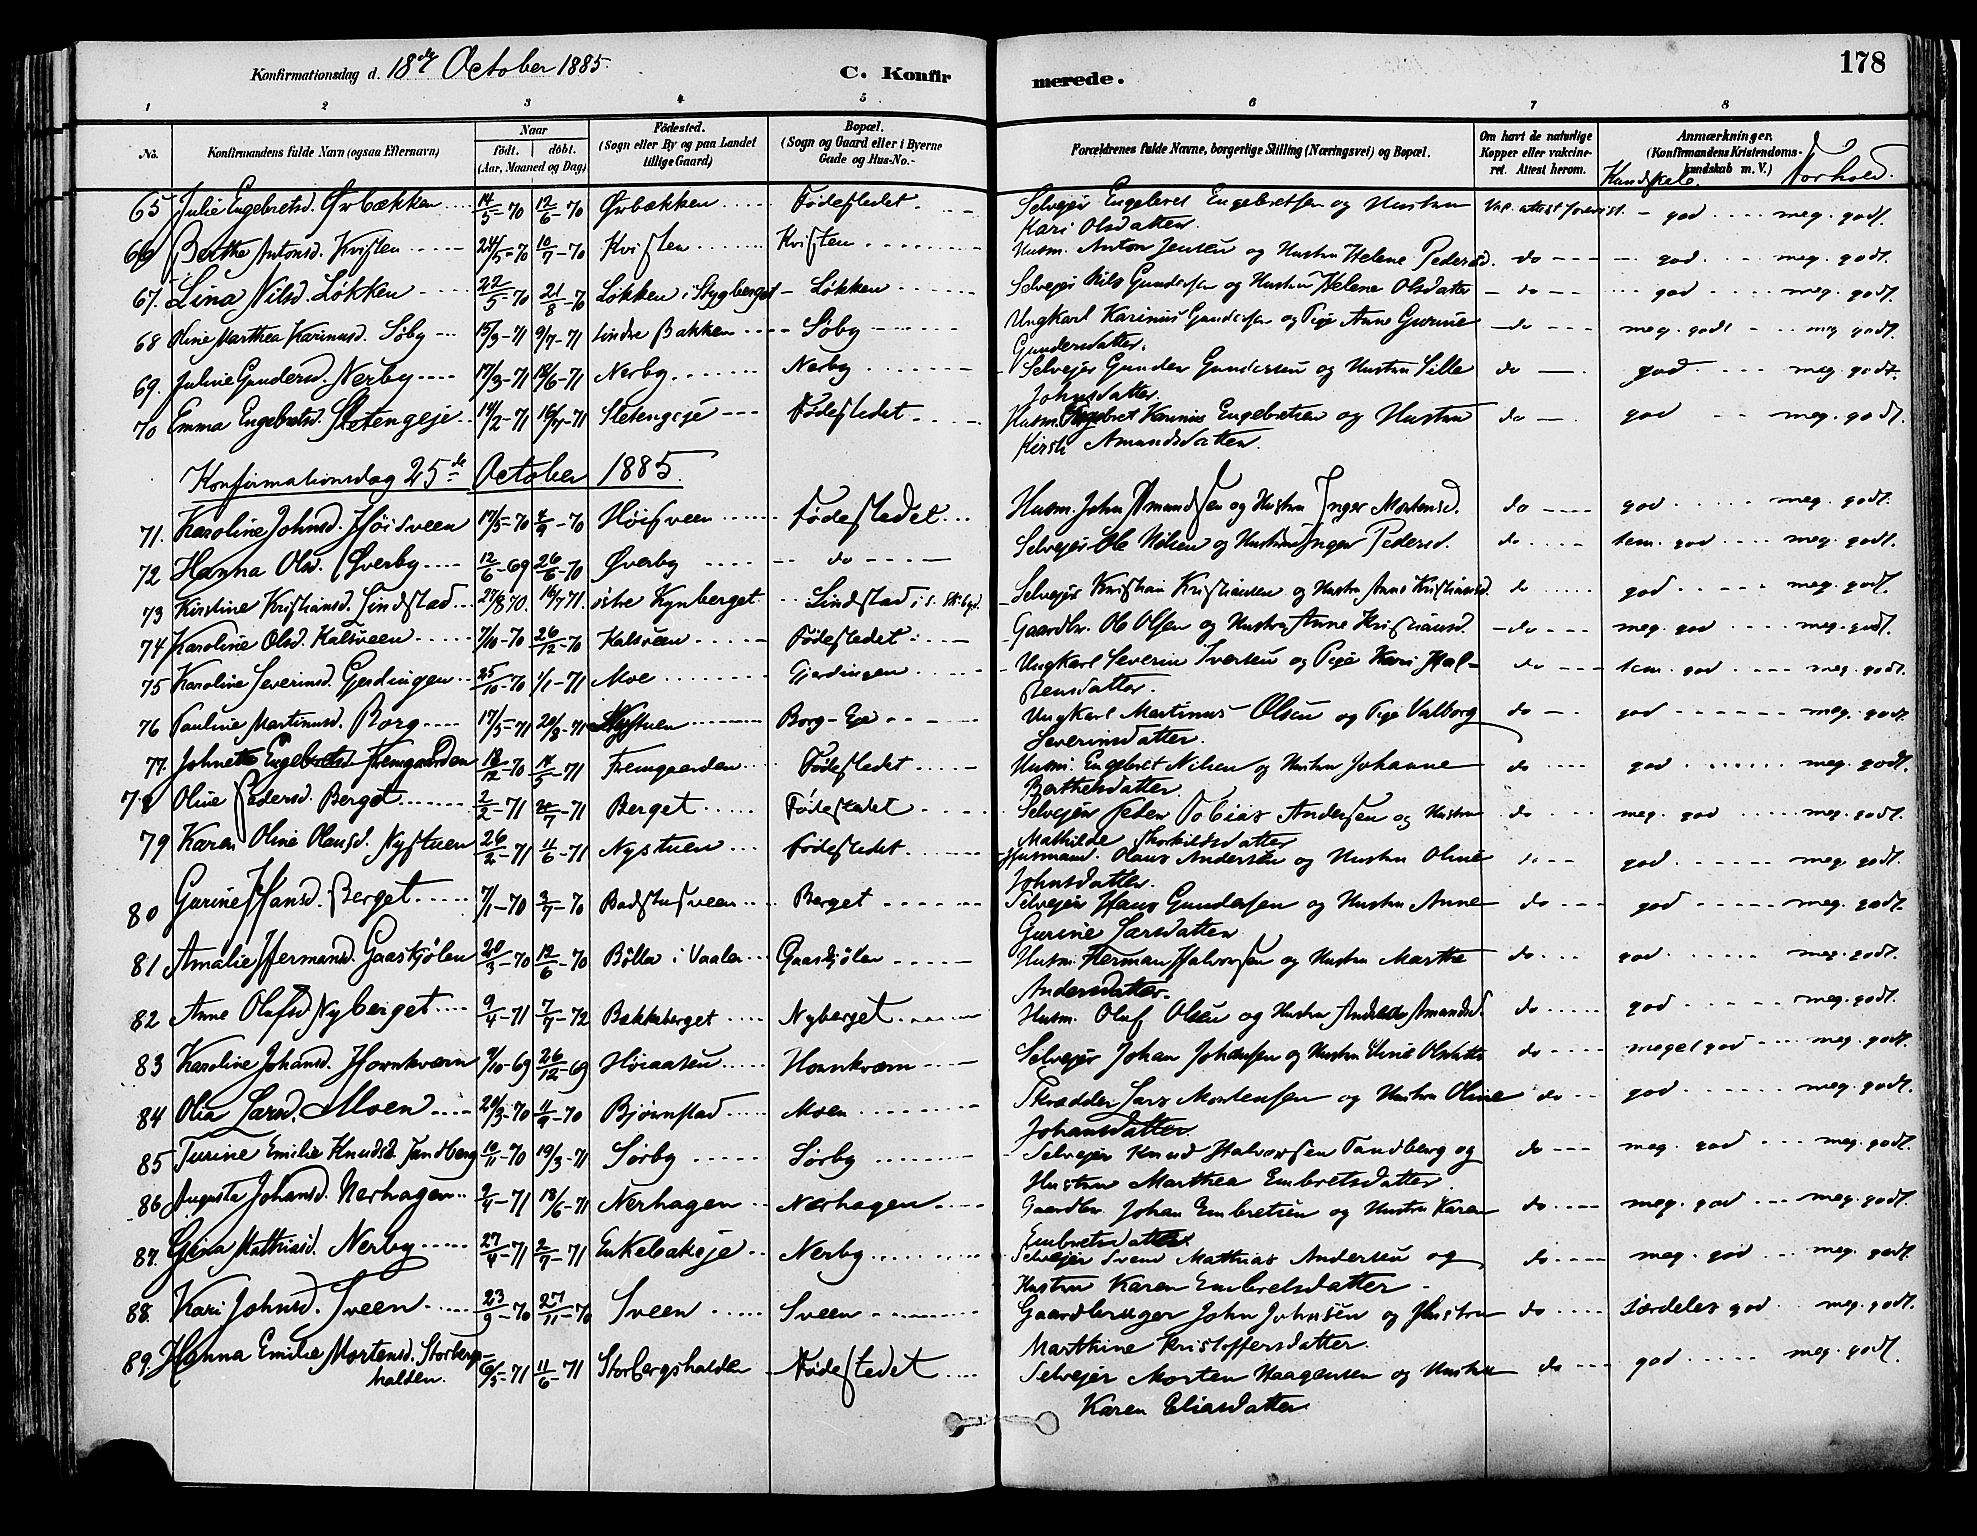 Konfirmationsdag d. 18de October 1885.
C. Konfirmerede.
178
1 2 3 4 5 6 7 8
No. Konfirmandens fulde Navn (ogsaa Efternavn) Naar født. døbt. (Aar, Maaned og Dag) Fødested. (Sogn eller By og paa Landet tillige Gaard) Bopæl. (Sogn og Gaard eller i Byerne Gade og Hus-No.) Forældrenes fulde Navne, borgerlige Stilling (Næringsvei) og Bopæl. Om havt de naturlige Kopper eller vakcineret. Attest herom. Anmærkninger. (Konfirmandens Kristendomskundskab m. V.) Kundskab. Forhold.
65 Julie Engebretsd. Ørbækken 14/5-70 12/6-70 Ørbækken Fødestedet Selveier Engebret Engebretsen og Hustru Vac. attest forevist god meg. godt.
Kari Olsdatter.
66 Berthe Antonsd. Kvisten 24/5-70 10/7-70 Kvisten Kvisten Husm. Anton Jensen og Hustru Helene Pedersd. do god meg. godt.
67. Lina Nilsd. Løkken 22/5-70 21/8-70 Løkken i Stygberget Løkken Selveier Nils Gundersen og Hustru Helene Olsdatter do god meg. godt.
68 Oline Marthea Karinusd. Søby 15/3-71 9/7-71 Bakken Søby Ungkarl Karinus Gundersen og Pige Anne Gurine do meg. godt meg godt.
Gundersdatter.
69. Juline Gundersd. Nerby 17/3-71 18/6-71 Nerby Nerby Selveier Gunder Gundersen og Hustru Sille do god meg. godt.
Johnsdatter.
70 Emma Engebretsd. Sletengeje 14/2-71 16/7-71 Sletengeje Fødestedet Husm. Engebret Karinus Engebretsen og Hustru do god meg. godt.
Kirsti Amundsdatter.
Konfirmationsdag 25de October 1885.
71. Karoline Johnsd. Høisveen 17/5-70 4/9-70 Høisveen Fødestedet Husm. John Amundsen og Hustru Inger Mortensd. do god meg. godt.
72 Hanna Olsd. Øverby 12/6-69 26/6-70 Øverby do Selveier Ole Nilsen og Hustru Inger Pedersd. do tem. god meg. godt.
73 Kirstine Kristiansd. Lindstad 27/8 70. 16/7 71. østre Kynberget Lindstad i s. Selveier Kristian Kristiansen og Hustru Anne Kristiansd. do god meg. godt.
74 Karoline Olsd. Kalsveen 7/10-70 26/12-70 Kalsveen Fødestedet Gaardbr. Ole Olsen og Hustru Anne Kristiansd. do meg. god meg. godt.
75 Karoline Severinsd. Gjerdingen 25/10-70 1/1-71 Moe Gjerdingen Ungkarl Severin Iversen og Pige Kari Hal- do tem. god meg. godt.
stensdatter.
76 Pauline Martinusd. Borg 17/5-71 20/8-71 Nystuen Borg-Eje Ungkarl Martinus Olsen og Pige Valborg do god meg. godt.
Severinsdatter.
77. Johnette Engebretsd. Fremgaarden 18/12-70 14/5-71 Fremgaarden Fødestedet Husm. Engebret Nilsen og Hustru Johanne do god meg. godt.
Berthelsdatter.
78 Oline Pedersd. Berget 2/2-71 /7-71 Berget Fødestedet Selveier Peder Tobias Andersen og Hustru do meg. god meg. godt.
Mathilde Thorkildsdatter
79 Karen Oline Olausd. Nystuen 26/2-71 11/6-71 Nystuen Fødestedet Husmand. Olaus Andersen og Hustru Oline do god meg. godt.
Johnsdatter.
80 Gurine Hansd. Berget 7/1-70 3/7-70 Badstusveen Berget Selveier Hans Gundersen og Hustru Anne do god meg. godt.
Gurine Larsdatter
81 Amalie Hermansd. Gaaskjølen 20/3-70 12/6-70 Bølla i Vaaler Gaaskjølen Husm. Herman Halvorsen og Hustru Marthe do god meg. godt.
Andersdatter.
82 Anne Olufsd. Nyberget 9/4-71 7/7-72 Bækkeberget Nyberget Husm. Oluf Olsen og Hustru Amundsd. do god meg. godt.
83 Karoline Johansd. Hornkværn 9/10-69 26/12-69 Høiaasen Hornkværn Selveier Johan Johansen og Hustru Eline Olsdatter do meget god meg. godt.
84 Olia Larsd. Moen 20/3-70 11/9-70 Bjørnstad Moen Skrædder Lars Mortensen og Hustru Oline do god meg. godt.
Johansdatter.
85 Turine Emilie Knudsd. Tandberg 10/11-70 19/3-71 Sørby Sørby Selveier Knud Halvorsen Tandberg og do meg. god meg. godt.
Hustru Marthea Embretsdatter.
86 Augusta Johansd. Nerhagen 9/4-71 18/6-71 Nerhagen Nerhagen Gaardbr. Johan Embretsen og Hustru Karen do meg. god meg. godt.
Embretsdatter.
87. Gina Mathiasd. Nerby 27/4-71 2/7-71 Enkebakeje Nerby Selveier Svend Mathias Andersen og do meg. god meg. godt.
Hustru Karen Embretsdatter
88. Kari Johnsd. Sveen 23/9-70 27/11-70 Sveen Sveen Gaardbruger John Johnsen og Hustru do særdeles god meg. godt.
Marthine Kristoffersdatter.
89. Hanna Emilie Mortensd. Storbergs- 6/5-71 11/6-71 Storbergshalden Fødestedet Selveier Morten Haagensen og Hustru do god meg. godt.
halden. Karen Eliasdatter.